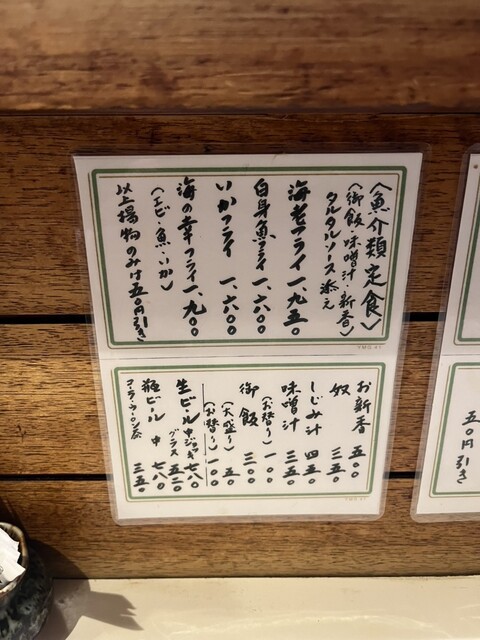 〈魚介類定食〉
(御飯・味噌汁・新香)
タルタルソース添え
海老フライ 一、九五〇
白身魚フライ 一、六〇〇
いかフライ 一、六〇〇
海の幸フライ 一、九〇〇
(エビ・魚・いか)
以上揚物のみは五〇円引き
お新香 五〇〇
奴 三五〇
しじみ汁 四五〇
味噌汁 三五〇
(お替り) 一〇〇
御飯 三〇〇
(大盛り) 五〇
(お替り) 一〇〇
生ビール 中ジョッキ 七八〇
グラス 五二〇
瓶ビール 中 七八〇
コーラ・ウーロン茶 三五〇
五〇円引き